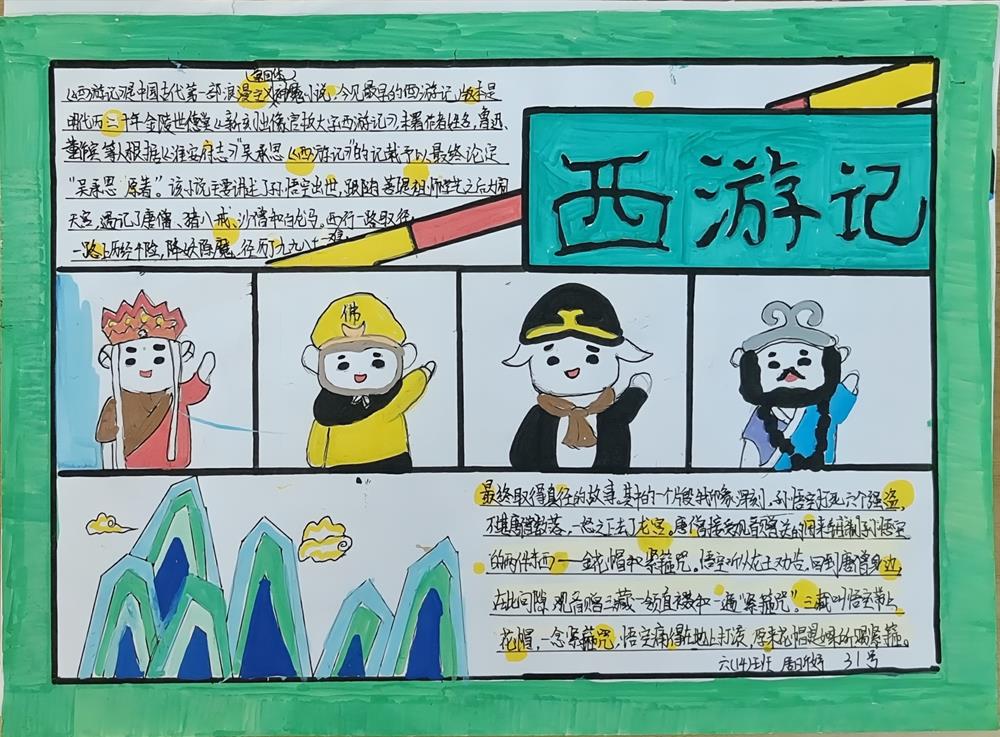 (章回体)
《西游记》是中国古代第一部浪漫主义神魔小说,今见最早的《西游记》版本是
明代万二十年金陵世德堂《新刻出像官板大字西游记》,未署作者姓名,鲁迅、
董作宾等人根据《淮安府志》"吴承恩《西游记》"的记载予以最终论定
"吴承恩 原著"。该小说主要讲述了孙悟空出世,跟随菩提祖师学艺之后大闹
天宫,遇记了唐僧、猪八戒、沙僧和白龙马。西行一路取经,
一路上历经千险,降妖除魔,径历九九八十一难,
西游记
佛
最终取得真径的故事。其中的一个片段我印象深刻。孙悟空打死六个强盗,
不堪唐僧数落,一怒之下去了龙宫。唐僧接受观音赠送的用来钳制孙悟空
的两件东西——金花帽和紧箍咒。悟空听从龙王劝告,回到唐僧身边,
在此间隙 观音赠三藏一领直裰和一遍"紧箍咒"。三藏叫悟空带上
花帽,一念紧箍咒,悟空痛得在地上打滚,原来花帽是如来所赐紧箍。
六(4)班 31号